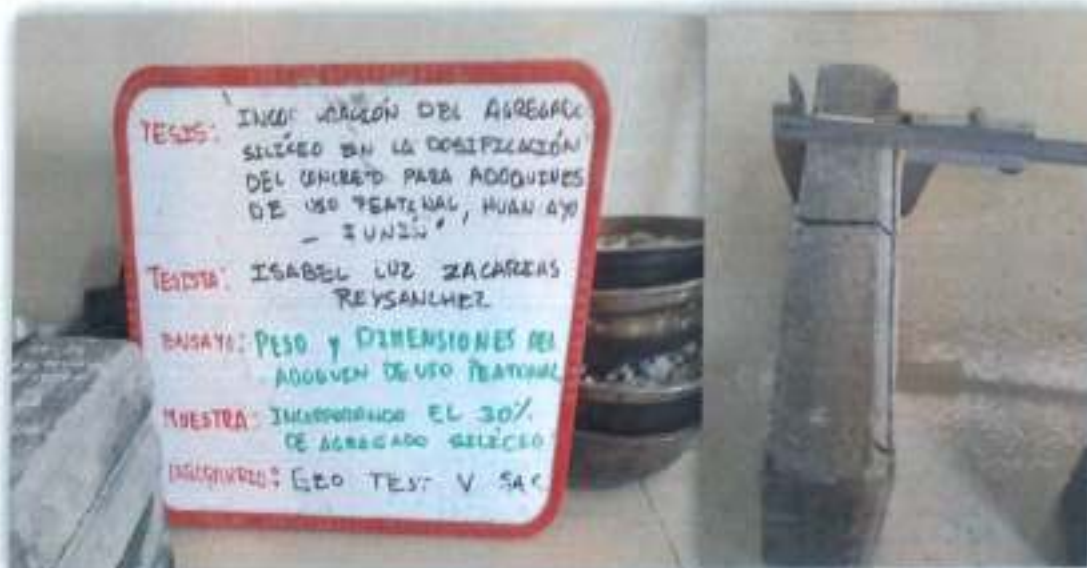 TESIS: "INCOR ACIÓN DEL AGREGADO
SILÍCEO EN LA DOSIFICACIÓN
DEL CONCRETO PARA ADOQUINES
DE USO PEATONAL, HUAN AYO
- JUNÍN"
TESISTA: ISABEL LUZ ZACARIAS
REYSANCHEZ
ENSAYO: PESO Y DIMENSIONES DEL
ADOQUIN DE USO PEATONAL
MUESTRA: INCORPORANDO EL 30%
DE AGREGADO SILÍCEO
LABORATORIO: GEO TEST V SAC